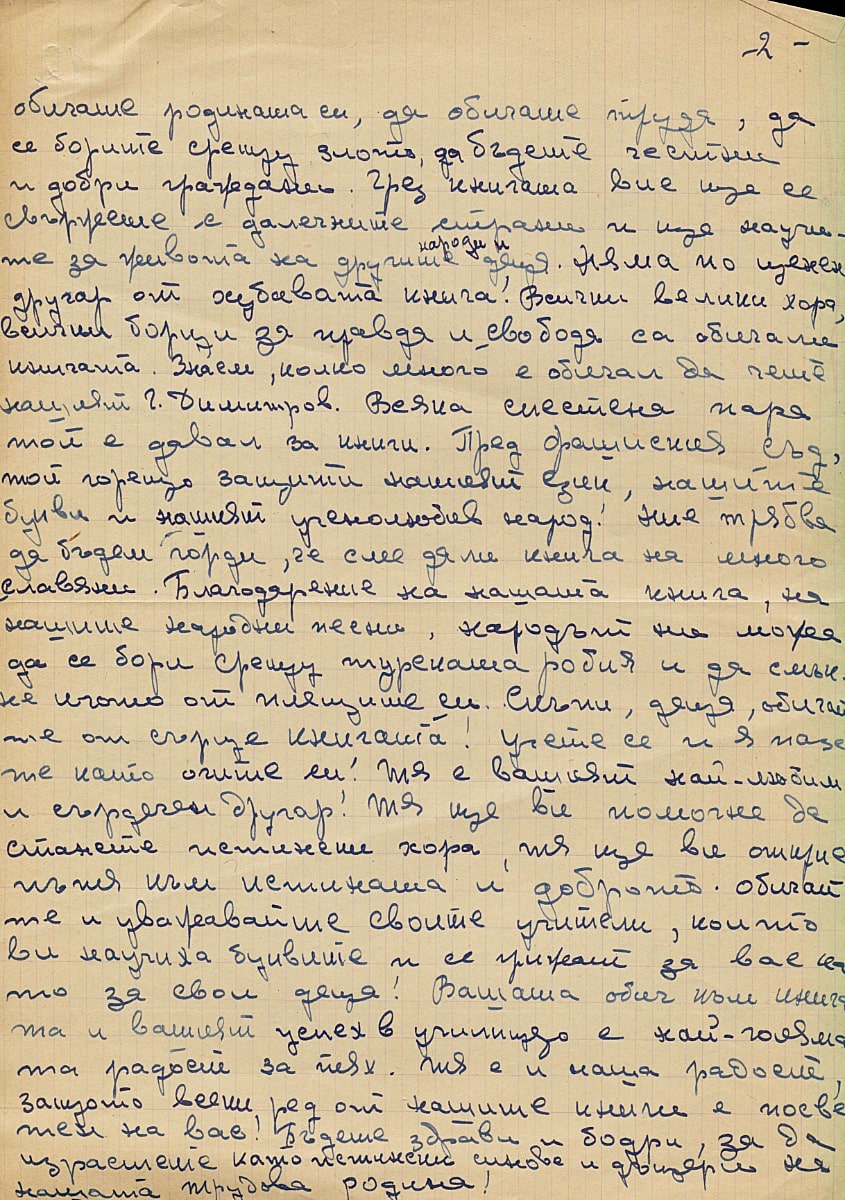 - 2 -
обичате родината си, да обичате труда, да
се борите срещу злото, да бъдете честни
и добри граждани. Чрез книгата вие ще се
свържете с далечните страни и ще научи-
те за живота на другите народи и деца. Няма по ценен
другар от хубавата книга! Всички велики хора,
всички борци за правда и свобода са обичали
книгата. Знаем, колко много е обичал да чете
нашият Г. Димитров. Всяка спестена пара
той е давал за книги. Пред фашисткия съд,
той горещо защити нашият език, нашите
букви и нашият ученолюбив народ! Ние трябва
да бъдем горди, че сме дали книга на много
славяни. Благодарение на нашата книга, на
нашите народни песни, народът ни можа
да се бори срещу турската робия и да смък-
не игото от плещите си. Скъпи, деца, обичай
те от сърце книгата! Учете се и я пазе
те като очите си! Тя е вашият най-любим
и сърдечен другар! Тя ще ви помогне да
станете истински хора, тя ще ви открие
пътя към истината и доброто. Обичай
те и уважавайте своите учители, които
ви научиха буквите и се грижат за вас ка
то за свои деца! Вашата обич към книга
та и вашият успех в училището е най-голяма
та радост за тях. Тя е и наша радост,
защото всеки ред от нашите книги е посве
тен на вас! Бъдете здрави и бодри, за да
израстете като истински синове и дъщери на
нашата трудова родина!